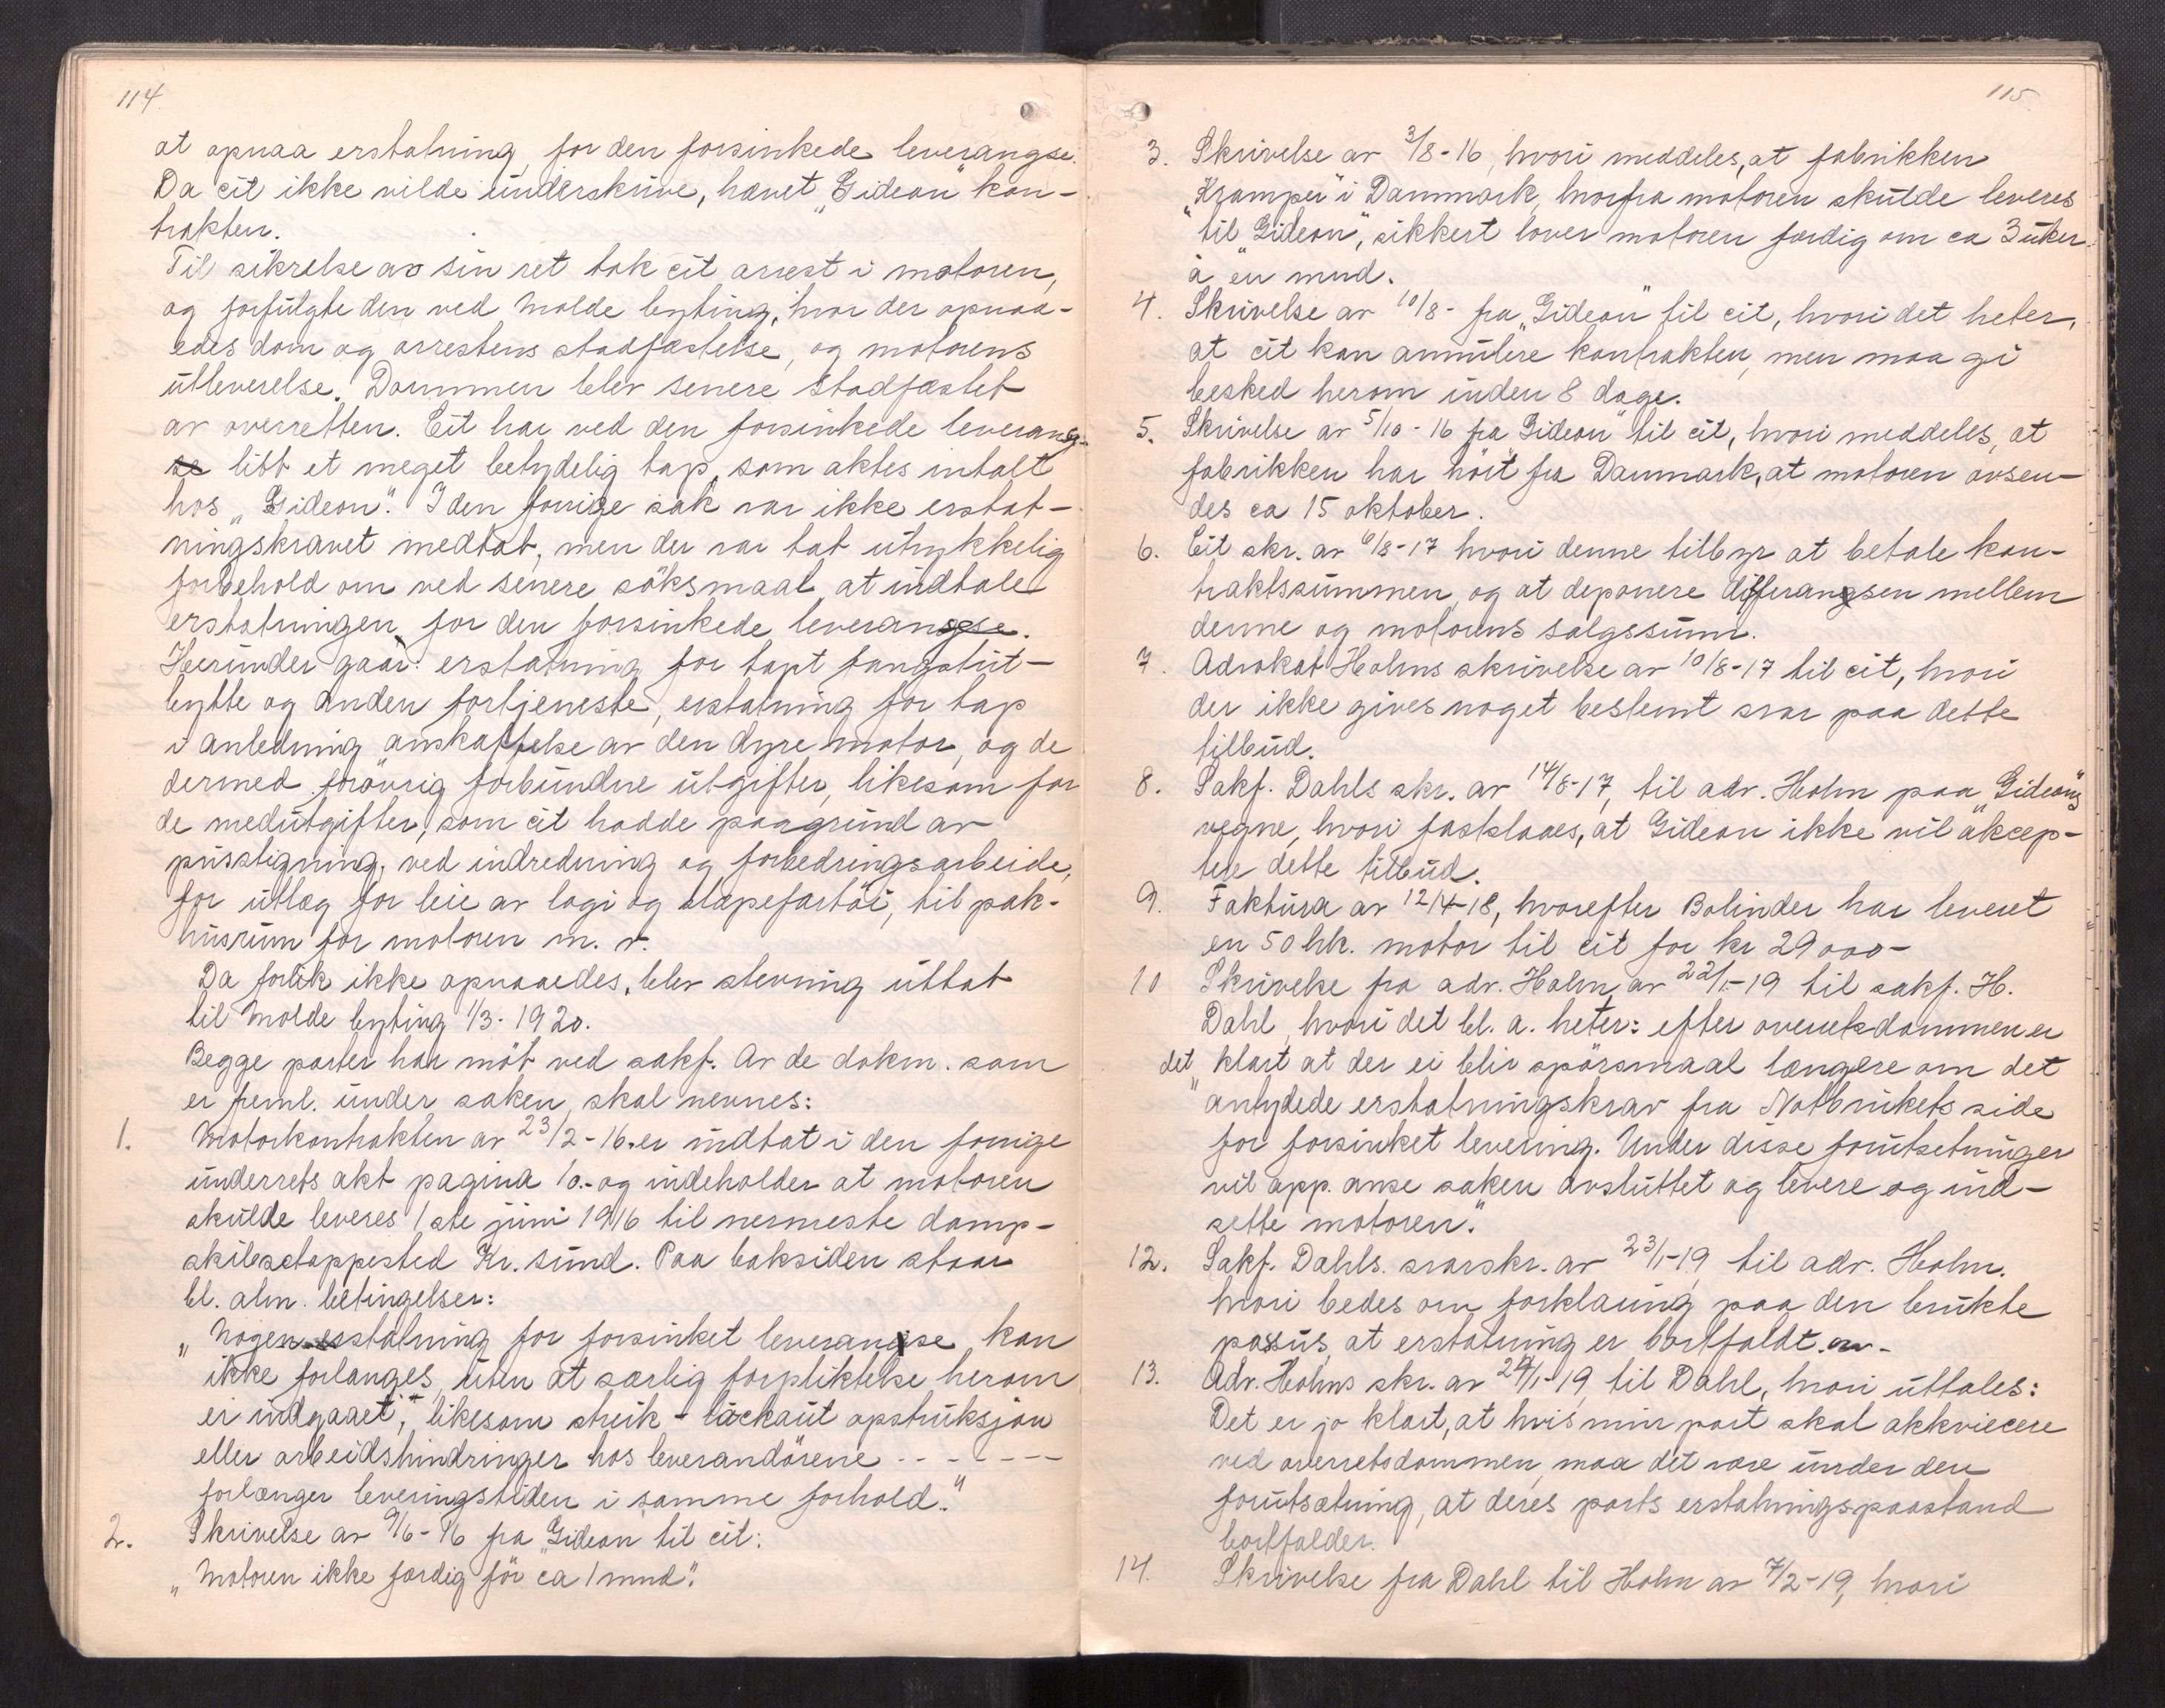 114.
at opnaa erstatning, for den forsinkede leverangse.
Da cit ikke vilde underskrive, hævet „Gideon" kon-
trakten.
Til sikrelse av sin ret tok cit arrest i motoren,
og forfulgte den ved Molde byting, hvor der opnaa-
edes dom og arrestens stadfæstelse, og motorens
utleverelse. Dommen blev senere stadfæstet
av overretten. Cit har ved den forsinkede leverang-
se litt et meget betydelig tap, som aktes intalt
hos „Gideon". I den forrige sak var ikke erstat-
ningskravet medtat, men der var tat utrykkelig
forbehold om ved senere söksmaal, at indtale
erstatningen for den forsinkede leverangse.
Herunder gaar: erstatning for tapt fangstut-
bytte og anden fortjeneste, erstatning for tap
i anledning anskaffelse av den dyre motor, og de
dermed forövrig forbundne utgifter, likesom for
de medutgifter, som cit hadde paagrund av
prisstigning, ved indredning og forbedringsarbeide,
for utlæg for leie av logi og slæpefartöi, til pak-
husrum for motoren m. v.
Da forlik ikke opnaaedes, blev stevning uttat
til Molde byting 1/3-1920.
Begge parter har möt ved sakf. Av de dokm. som
er freml. under saken, skal nevnes:
1. Motorkontrakten av 23/2-16. er indtat i den forrige
underrets akt pagina 10.- og indeholder at motoren
skulde leveres 1ste juni 1916 til nermeste damp-
skibsstoppested Kr. sund. Paa baksiden staar
bl. alm. betingelser:
„Nogen erstatning for forsinket leverangse kan
ikke forlanges, uten at særlig forpliktelse herom
er indgaaet, likesom streik - lockaut opstruksjon
eller arbeidshindringer hos leverandörene - - - - - - -
forlænger leveringstiden i samme forhold."
2. Skrivelse av 9/6-16 fra „Gideon til cit:
„Motoren ikke færdig för ca 1 mnd".
115.
3. Skrivelse av 3/8-16, hvori meddeles, at fabrikken
„Kramper" i Danmark, hvorfra motoren skulde leveres
til „Gideon", sikkert lover motoren færdig om ca 3 uker
à en mnd.
4. Skrivelse av 10/8- fra „Gideon" til cit, hvori det heter,
at cit kan annulere kontrakten, men maa gi
besked herom inden 8 dage.
5. Skrivelse av 5/10-16 fra Gideon" til cit, hvori meddeles, at
fabrikken har hört fra Danmark, at motoren avsen-
des ca 15 oktober.
6. Cit skr. av 6/8-17 hvori denne tilbyr at betale kon-
traktssummen, og at deponere differangsen mellem
denne og motorens salgssum.
7. Advokat Holms skrivelse av 10/8-17 til cit, hvori
der ikke gives noget bestemt svar paa dette
tilbud.
8. Sakf. Dahls skr. av 14/8-17, til adv. Holm paa „Gideons"
vegne, hvori fastslaaes, at Gideon ikke vil aksep-
tere dette tilbud.
9. Faktura av 12/4-18, hvorefter Bolinder har leveret
en 50 hk. motor til cit for kr 29000-
10 Skrivelse fra adv. Holm av 22/1-19 til sakf. H.
Dahl, hvori det bl. a. heter: efter overretsdommen er
det „klart at der ei blir spörsmaal længere om det
antydede erstatningskrav fra Notbrukets side
for forsinket levering. Under disse forutsetninger
vil app. anse saken avsluttet og levere og ind-
sette motoren."
12. Sakf. Dahls. svarskr. av 23/1-19 til adv. Holm.
hvori bedes om forklaring paa den brukte
passus, at erstatning er bortfaldt. -
13. Adv. Holms skr. av 24/1-19 til Dahl, hvori uttales:
Det er jo klart, at hvis min part skal akkviecere
ved overretsdommen, maa det være under den
forutsætning, at deres parts erstatningspaastand
bortfalder.
14. Skrivelse fra Dahl til Holm av 7/2-19, hvori